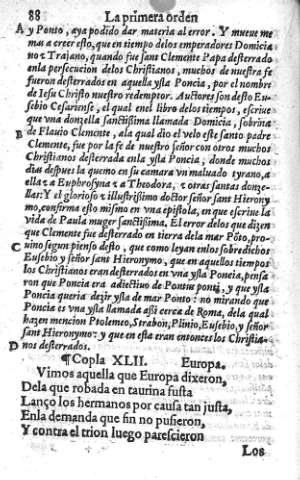 88 La primera orden
A y Ponto, aya podido dar materia al error. Y mueve me
mas a creer esto, que en tiempo delos emperadores Domicia
no z Trajano, quando fue sant Clemente Papa desterrado
enla persecucion delos Christianos, muchos de nuestra fe
fueron desterrados en aquella ysla Poncia, por el nombre
de Iesu Christo nuestro redemptor. Auctores son desto Eu-
sebio Cesariense, el qual enel libro delos tiempos, escrive
que vna donzella sanctissima llamada Domicia, sobrina
B de Flavio Clemente, ala qual dio el velo este santo padre
Clemente, fue por la fe de nuestro señor con otros muchos
Christianos desterrada enla ysla Poncia, donde muchos
dias despues la quemo en su camara vn malvado tyrano, a
ella z a Euphrosyna z a Theodora, z otras santas donze-
llas: Y el glorioso z illustrissimo doctor señor sant Hierony
mo, confirma esto mismo en vna epistola, en que escrive la
vida de Paula muger sanctissima. El error delos que dizen
que Clemente fue desterrado en tierra dela mar Põto, pro-
C vino segun pienso desto, que como leyan enlos sobredichos
Eusebio y señor sant Hieronymo, que en aquellos tiempos
los Christianos eran desterrados en vna ysla Poncia, pensa
ron que Poncia era adiectivo de Pontus ponti, y que ysla
Poncia queria dezir ysla de mar Ponto: no mirando que
Poncia es vna ysla llamada assi cerca de Roma, dela qual
hazen mencion Ptolemeo, Strabon, Plinio, Eusebio, y señor
sant Hieronymo: y que en esta eran entonces los Christia-
D nos desterrados.
¶Copla XLII. Europa.
Vimos aquella que Europa dixeron,
Dela que robada en taurina fusta
Lanço los hermanos por causa tan justa,
Enla demanda que fin no pusieron,
Y contra el trion luego parescieron
Los